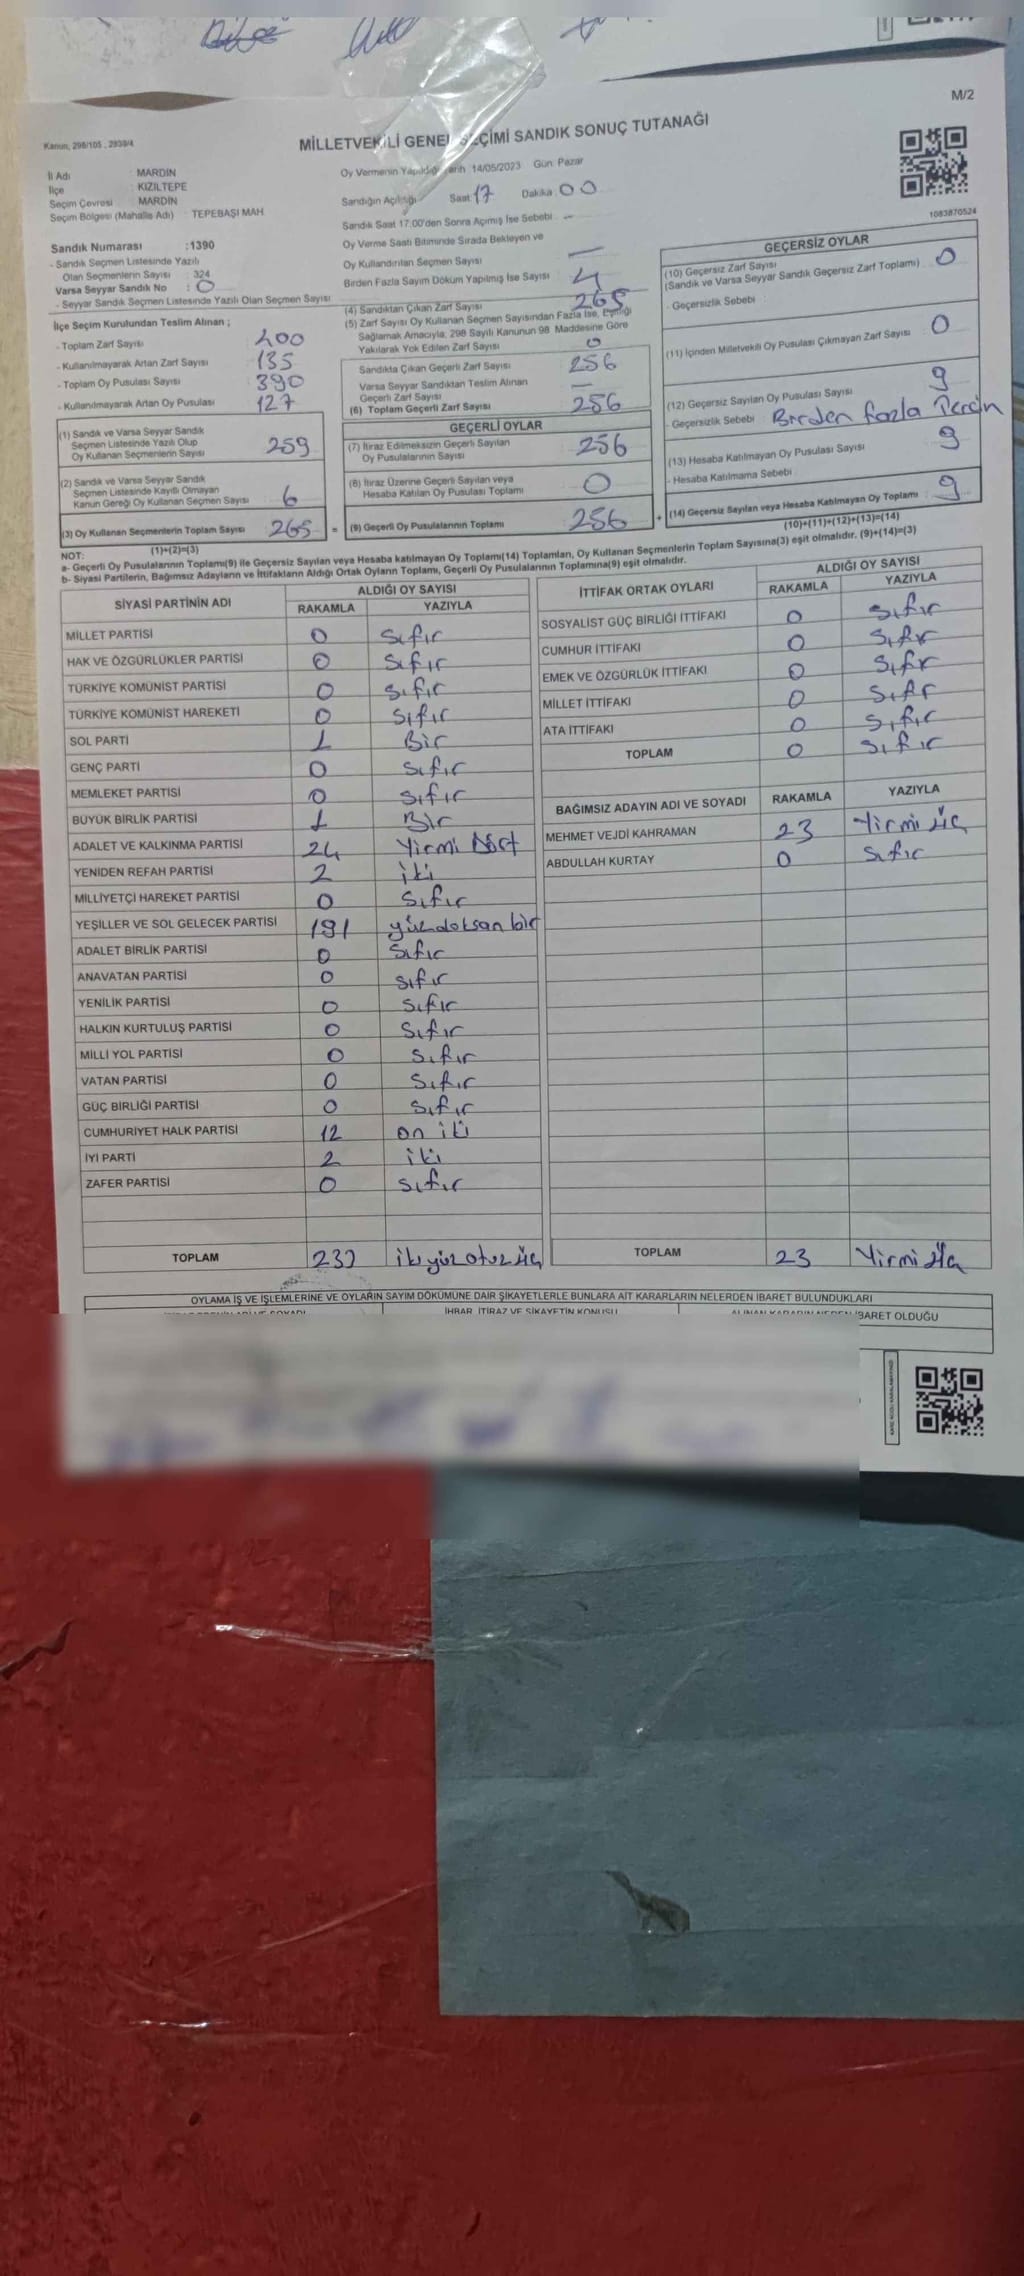 M/2
Kanun, 298/105 , 2839/4
MİLLETVEKİLİ GENEL SEÇİMİ SANDIK SONUÇ TUTANAĞI
İl Adı : MARDİN
İlçe : KIZILTEPE
Seçim Çevresi : MARDİN
Seçim Bölgesi (Mahalle Adı) : TEPEBAŞI MAH
Sandık Numarası :1390
- Sandık Seçmen Listesinde Yazılı
Olan Seçmenlerin Sayısı : 324
Varsa Seyyar Sandık No : 0
- Seyyar Sandık Seçmen Listesinde Yazılı Olan Seçmen Sayısı
İlçe Seçim Kurulundan Teslim Alınan ;
- Toplam Zarf Sayısı : 400
- Kullanılmayarak Artan Zarf Sayısı : 135
- Toplam Oy Pusulası Sayısı : 390
- Kullanılmayarak Artan Oy Pusulası : 127
(1) Sandık ve Varsa Seyyar Sandık
Seçmen Listesinde Yazılı Olup
Oy Kullanan Seçmenlerin Sayısı 259
(2) Sandık ve Varsa Seyyar Sandık
Seçmen Listesinde Kayıtlı Olmayan
Kanun Gereği Oy Kullanan Seçmen Sayısı 6
(3) Oy Kullanan Seçmenlerin Toplam Sayısı 265
(1)+(2)=(3)
Oy Vermenin Yapıldığı Tarih :14/05/2023 Gün: Pazar
Sandığın Açıldığı Saat: 17 Dakika: 00
Sandık Saat 17:00'den Sonra Açımış İse Sebebi : -
Oy Verme Saati Bitiminde Sırada Bekleyen ve
Oy Kullandırılan Seçmen Sayısı -
Birden Fazla Sayım Döküm Yapılmış İse Sayısı 4
(4) Sandıktan Çıkan Zarf Sayısı 265
(5) Zarf Sayısı Oy Kullanan Seçmen Sayısından Fazla İse, Eşitliği
Sağlamak Amacıyla; 298 Sayılı Kanunun 98 Maddesine Göre
Yakılarak Yok Edilen Zarf Sayısı 0
Sandıkta Çıkan Geçerli Zarf Sayısı 256
Varsa Seyyar Sandıktan Teslim Alınan
Geçerli Zarf Sayısı -
(6) Toplam Geçerli Zarf Sayısı 256
GEÇERLİ OYLAR
(7) İtiraz Edilmeksizin Geçerli Sayılan
Oy Pusulalarının Sayısı 256
(8) İtiraz Üzerine Geçerli Sayılan veya
Hesaba Katılan Oy Pusulası Toplamı 0
= (9) Geçerli Oy Pusulalarının Toplamı 256 +
1083870524
GEÇERSİZ OYLAR
(10) Geçersiz Zarf Sayısı
(Sandık ve Varsa Seyyar Sandık Geçersiz Zarf Toplamı) : 0
- Geçersizlik Sebebi :
(11) İçinden Milletvekili Oy Pusulası Çıkmayan Zarf Sayısı : 0
(12) Geçersiz Sayılan Oy Pusulası Sayısı : 9
- Geçersizlik Sebebi Birden fazla Tercih
(13) Hesaba Katılmayan Oy Pusulası Sayısı : 9
- Hesaba Katılmama Sebebi :
(14) Geçersiz Sayılan veya Hesaba Katılmayan Oy Toplamı : 9
(10)+(11)+(12)+(13)=(14)
NOT:
a- Geçerli Oy Pusulalarının Toplamı(9) ile Geçersiz Sayılan veya Hesaba katılmayan Oy Toplamı(14) Toplamları, Oy Kullanan Seçmenlerin Toplam Sayısına(3) eşit olmalıdır. (9)+(14)=(3)
b- Siyasi Partilerin, Bağımsız Adayların ve İttifakların Aldığı Ortak Oyların Toplamı, Geçerli Oy Pusulalarının Toplamına(9) eşit olmalıdır.
SİYASİ PARTİNİN ADI ALDIĞI OY SAYISI
RAKAMLA YAZIYLA
MİLLET PARTİSİ 0 sıfır
HAK VE ÖZGÜRLÜKLER PARTİSİ 0 sıfır
TÜRKİYE KOMÜNİST PARTİSİ 0 sıfır
TÜRKİYE KOMÜNİST HAREKETİ 0 sıfır
SOL PARTİ 1 Bir
GENÇ PARTİ 0 sıfır
MEMLEKET PARTİSİ 0 sıfır
BÜYÜK BİRLİK PARTİSİ 1 Bir
ADALET VE KALKINMA PARTİSİ 24 Yirmi Dört
YENİDEN REFAH PARTİSİ 2 iki
MİLLİYETÇİ HAREKET PARTİSİ 0 sıfır
YEŞİLLER VE SOL GELECEK PARTİSİ 191 yüzdoksan bir
ADALET BİRLİK PARTİSİ 0 sıfır
ANAVATAN PARTİSİ 0 sıfır
YENİLİK PARTİSİ 0 sıfır
HALKIN KURTULUŞ PARTİSİ 0 sıfır
MİLLİ YOL PARTİSİ 0 sıfır
VATAN PARTİSİ 0 sıfır
GÜÇ BİRLİĞİ PARTİSİ 0 sıfır
CUMHURİYET HALK PARTİSİ 12 on iki
İYİ PARTİ 2 iki
ZAFER PARTİSİ 0 sıfır
TOPLAM 233 ikiyüzotuzüç
İTTİFAK ORTAK OYLARI ALDIĞI OY SAYISI
RAKAMLA YAZIYLA
SOSYALİST GÜÇ BİRLİĞİ İTTİFAKI 0 sıfır
CUMHUR İTTİFAKI 0 sıfır
EMEK VE ÖZGÜRLÜK İTTİFAKI 0 sıfır
MİLLET İTTİFAKI 0 sıfır
ATA İTTİFAKI 0 sıfır
TOPLAM 0 sıfır
BAĞIMSIZ ADAYIN ADI VE SOYADI RAKAMLA YAZIYLA
MEHMET VEJDİ KAHRAMAN 23 Yirmi üç
ABDULLAH KURTAY 0 sıfır
TOPLAM 23 Yirmi üç
OYLAMA İŞ VE İŞLEMLERİNE VE OYLARIN SAYIM DÖKÜMÜNE DAİR ŞİKAYETLERLE BUNLARA AİT KARARLARIN NELERDEN İBARET BULUNDUKLARI
İHBAR, İTİRAZ VE ŞİKAYETİN KONUSU
İBARET OLDUĞU